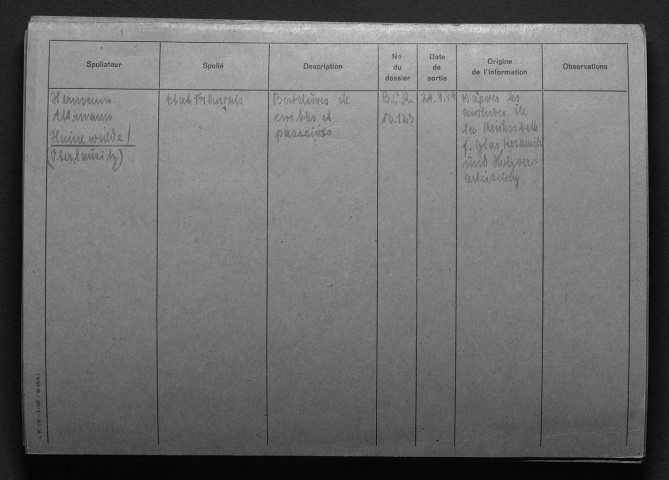 Spoliateur
Spolié
Description
N° du dossier
Date de sortie
Origine de l'information
Observations
Hermann
Altmann
Hainewalde /
(Oberlausitz)
Etat Français
Bordures de
cribles et
B.C.R.
10.123
24.9.49
D'après les
archives de
la Reichsstelle
f. Glas, Keramik
und Holzver-
arbeitung